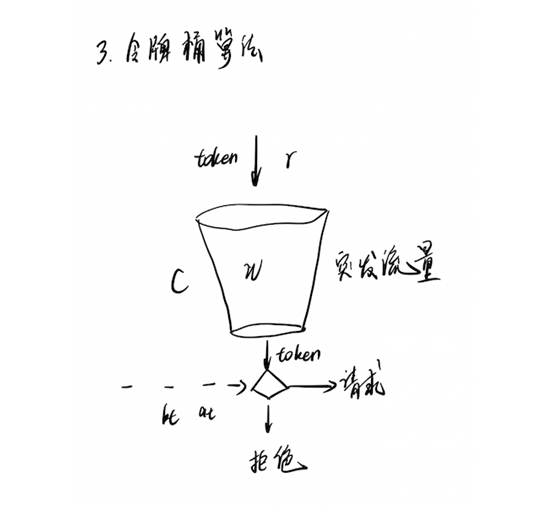 3. 令牌桶算法
token r
C w 突发流量
token
bt at 请求
拒绝